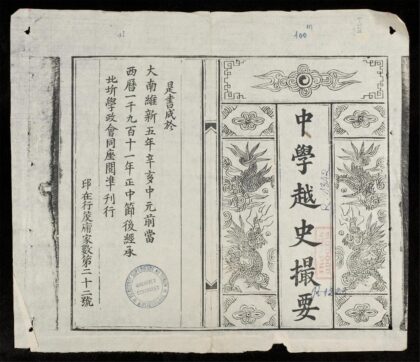 100
中學越史撮要
是書成於
大南維新五年辛亥中元前當
西曆一千九百十一年正中節後經承
北圻學政會同座閱準刊行
印在行茂庯家數第二十二號